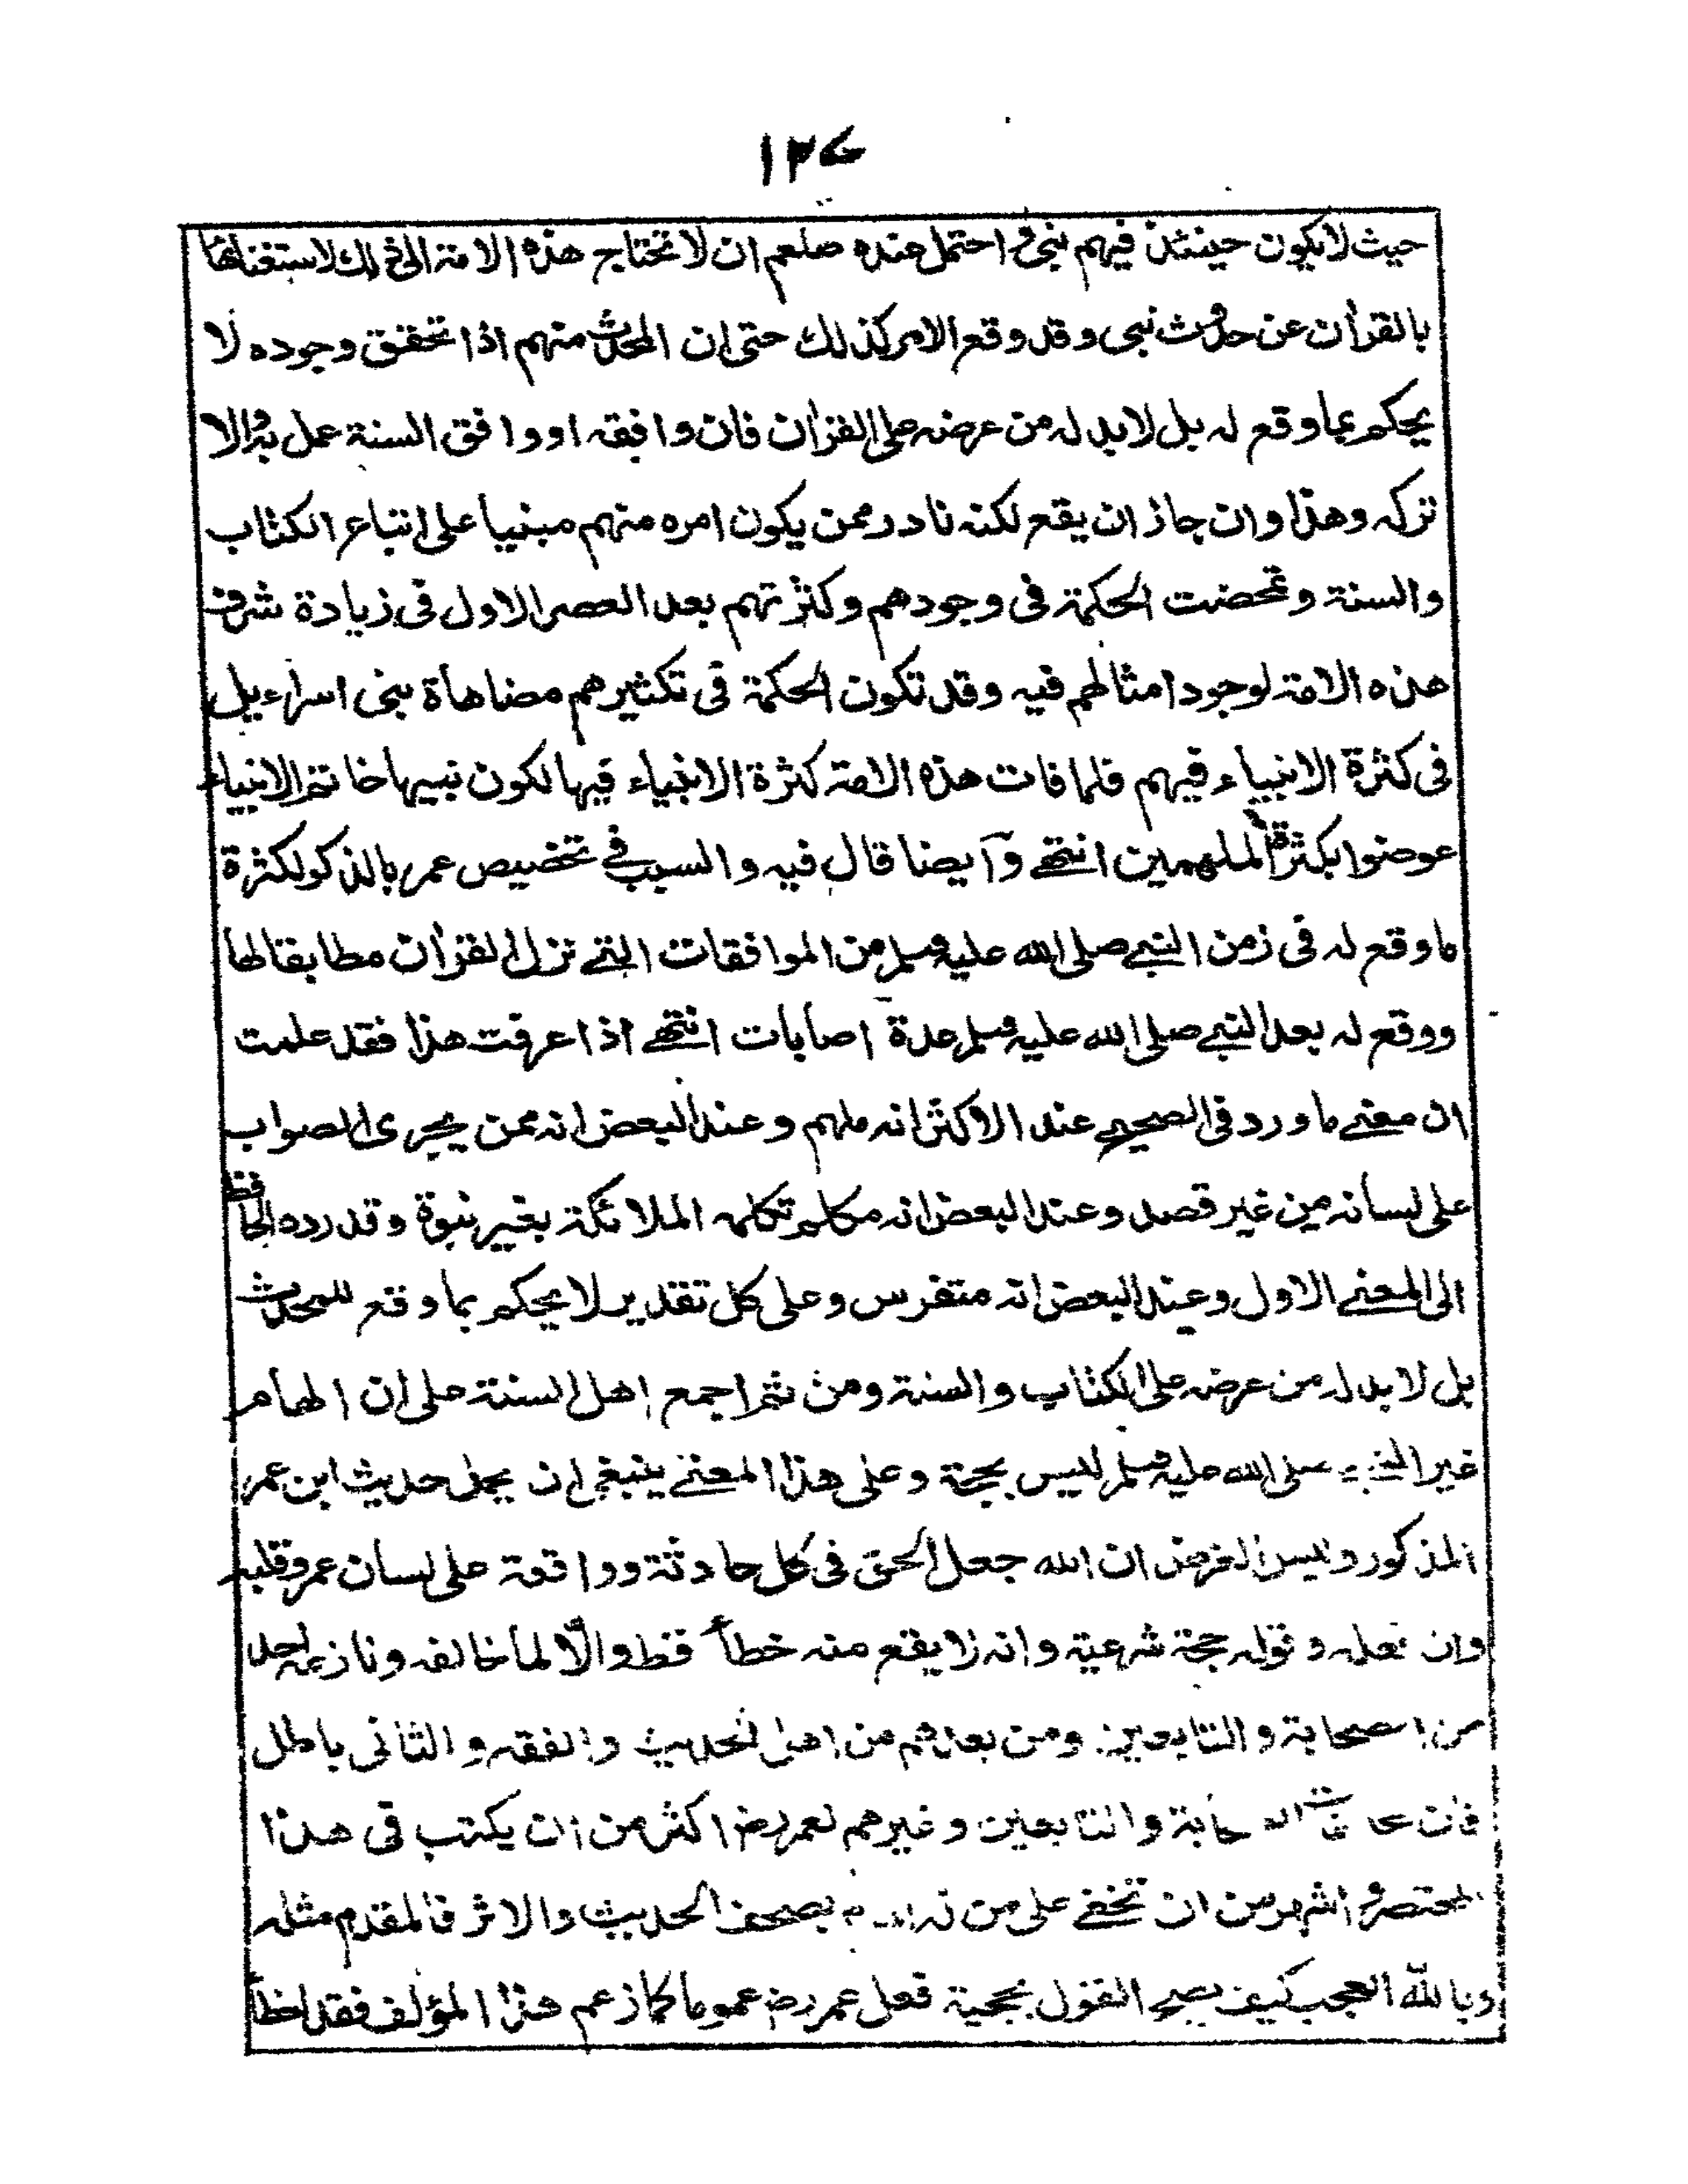 ۱۲۷
حيث لا يكون حينئذ فيهم نبى واحتمل عنده صلعم ان لا تحتاج هذه الامة الى ذلك لاستغنائها
بالقرأن عن حدوث نبى وقد وقع الامر كذلك حتى ان المحدث منهم اذا تحقق وجوده لا
يحكم بما وقع له بل لابد له من عرضه على القرأن فان وافقه او وافق السنة عمل به والا
تركه وهذا وان جاز ان يقع لكنه نادر ممن يكون امره منهم مبنيا على اتباع الكتاب
والسنة وتمحضت الحكمة فى وجودهم وكثرتهم بعد العصر الاول فى زيادة شرف
هذه الامة لوجود امثالهم فيه وقد تكون الحكمة فى تكثيرهم مضاهاة بنى اسراءيل
فى كثرة الانبياء فيهم فلما فات هذه الامة كثرة الانبياء فيها لكون نبيها خاتم الانبياء
عوضوا بكثرة الملهمين انتهى وايضا قال فيه والسبب فى تخصيص عمر بالذكر لكثرة
ما وقع له فى زمن النبى صلى الله عليه وسلم من الموافقات التى نزل القرأن مطابقا لها
ووقع له بعد النبى صلى الله عليه وسلم عدة اصابات انتهى اذا عرفت هذا فقد علمت
ان معنى ما ورد فى الصحيح عند الاكثر انه ملهم وعند البعض انه ممن يجرى الصواب
على لسانه من غير قصد وعند البعض انه مكلم تكلمه الملائكة بغير نبوة وقد رده الحافظ
الى المعنى الاول وعند البعض انه متفرس وعلى كل تقدير لا يحكم بما وقع للمحدث
بل لابد له من عرضه على الكتاب والسنة ومن ثم اجمع اهل السنة على ان الهام
غير النبى صلى الله عليه وسلم ليس بحجة وعلى هذا المعنى ينبغى ان يحمل حديث ابن عمر
المذكور وليس الغرض ان الله جعل الحق فى كل حادثة وواقعة على لسان عمر وقلبه
وان فعله وقوله حجة شرعية وانه لا يقع منه خطأ قط والّا لما خالفه ونازعه احد
من الصحابة والتابعين ومن بعدهم من اهل الحديث والفقه والثانى باطل
فان مخالفات الصحابة والتابعين وغيرهم لعمر رض اكثر من ان يكتب فى هذا
المختصر واشهر من ان تخفى على من له بصحف الحديث والاثر فالمقدم مثله
وبالله العجب كيف يصح القول بحجية فعل عمر رض عموما كما زعم هذا المؤلف فقد اخطأ